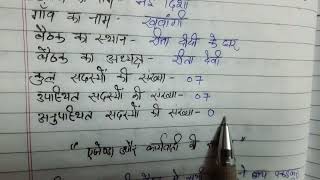 गाँव का नाम - खूंवागी
बैठक का स्थान - सीता देवी के घर
बैठक का अध्यक्ष - सीता देवी
कुल सदस्यों की संख्या - 07
उपस्थित सदस्यों की संख्या - 07
अनुपस्थित सदस्यों की संख्या - 0
" एजेण्डा और कार्यवाही